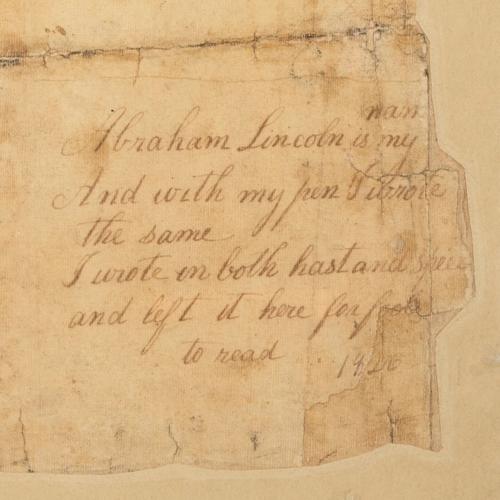 nam
Abraham Lincoln is my
And with my pen I wrote
the same
I wrote in both hast and speed
and left it here for fools
to read 1826